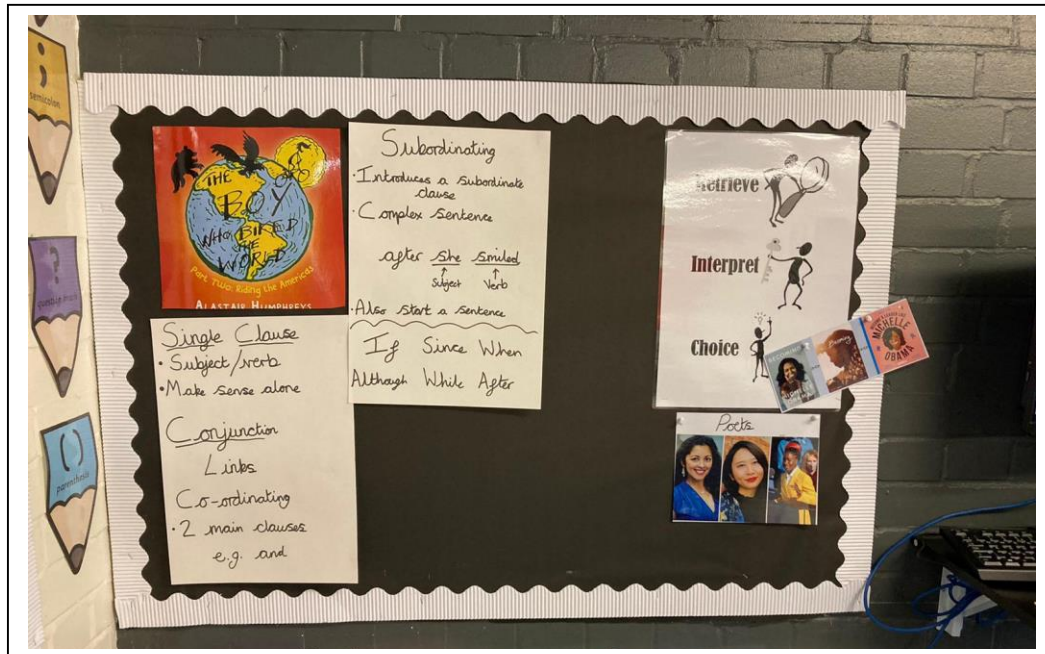 ;
semicolon
?
question mark
( )
parenthesis
THE
BOY
WHO BIKED
THE
WORLD
Part Two: Riding the Americas
ALASTAIR HUMPHREYS
Single Clause
· Subject/verb
· Make sense alone
Conjunction
Links
Co-ordinating
· 2 main clauses
e.g. and
Subordinating
· Introduces a subordinate
clause
· Complex sentence
after she smiled
↑ ↑
Subject Verb
· Also start a sentence
If Since When
Although While After
Retrieve
Interpret
Choice
BECOMING
Becoming
MICHELLE
OBAMA
Poets